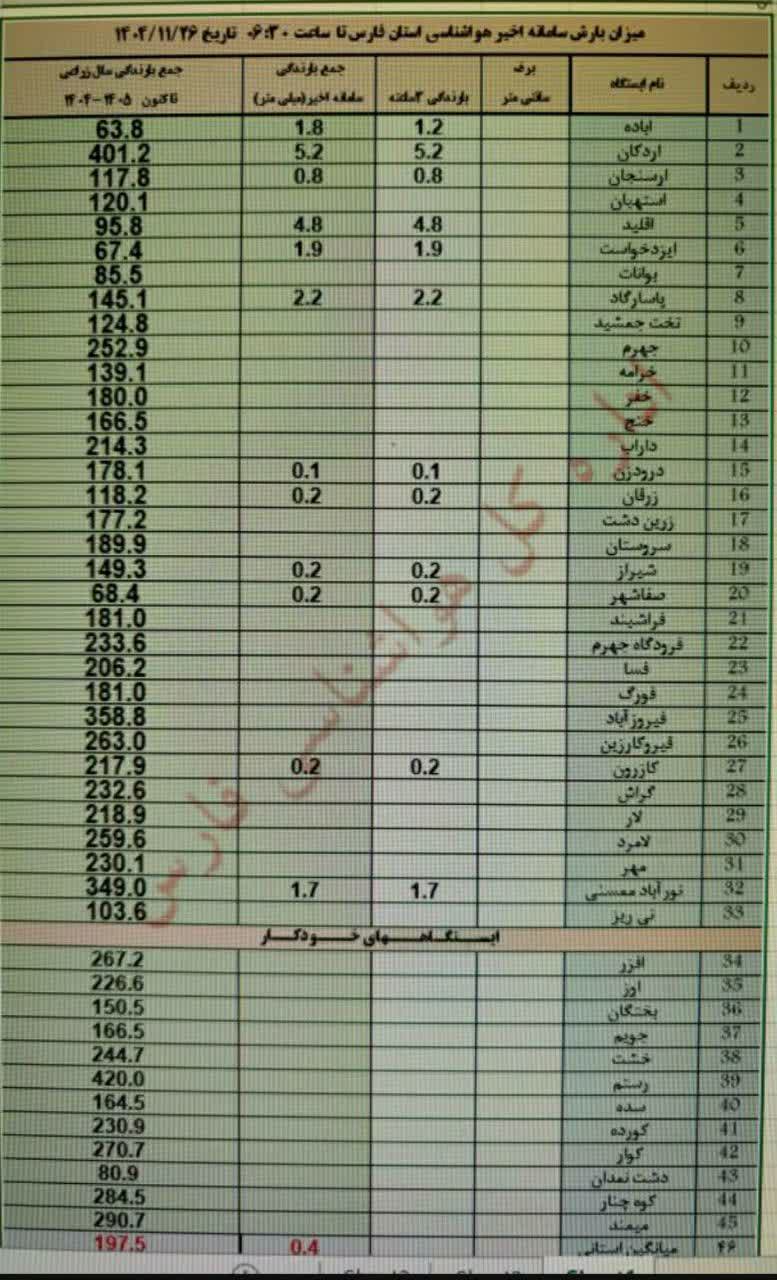 میزان بارش سامانه اخیر هواشناسی استان فارس تا ساعت ۰۶:۳۰ تاریخ ۱۴۰۴/۱۱/۲۶
ردیف نام ایستگاه برف سانتی متر بارندگی ۳ساعته جمع بارندگی سامانه اخیر(میلی متر) جمع بارندگی سال زراعی تاکنون ۱۴۰۵-۱۴۰۴
1 آباده 1.2 1.8 63.8
2 اردکان 5.2 5.2 401.2
3 ارسنجان 0.8 0.8 117.8
4 استهبان 120.1
5 اقلید 4.8 4.8 95.8
6 ایزدخواست 1.9 1.9 67.4
7 بوانات 85.5
8 پاسارگاد 2.2 2.2 145.1
9 تخت جمشید 124.8
10 جهرم 252.9
11 خرامه 139.1
12 خفر 180.0
13 خنج 166.5
14 داراب 214.3
15 درودزن 0.1 0.1 178.1
16 زرقان 0.2 0.2 118.2
17 زرین دشت 177.2
18 سروستان 189.9
19 شیراز 0.2 0.2 149.3
20 صفاشهر 0.2 0.2 68.4
21 فراشبند 181.0
22 فرودگاه جهرم 233.6
23 فسا 206.2
24 فورگ 181.0
25 فیروزآباد 358.8
26 قیروکارزین 263.0
27 کازرون 0.2 0.2 217.9
28 گراش 232.6
29 لار 218.9
30 لامرد 259.6
31 مهر 230.1
32 نورآباد ممسنی 1.7 1.7 349.0
33 نی ریز 103.6
ایستگاههای خودکار
34 افزر 267.2
35 اوز 226.6
36 بختگان 150.5
37 جویم 166.5
38 خشت 244.7
39 رستم 420.0
40 سده 164.5
41 کورده 230.9
42 کوار 270.7
43 دشت نمدان 80.9
44 کوه چنار 284.5
45 میمند 290.7
۴۶ میانگین استانی 0.4 197.5
اداره کل هواشناسی فارس